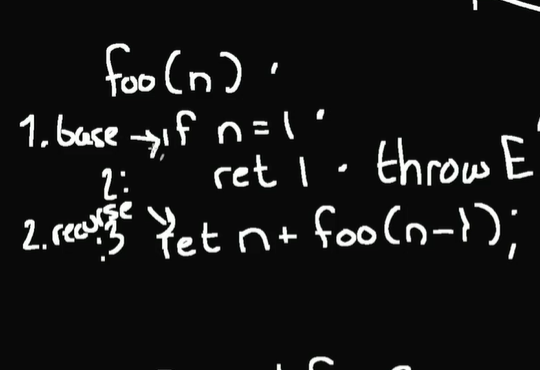 foo(n)
1. base → if n = 1
2: ret 1 · throw E
2. recurse :3 ret n + foo(n-1);